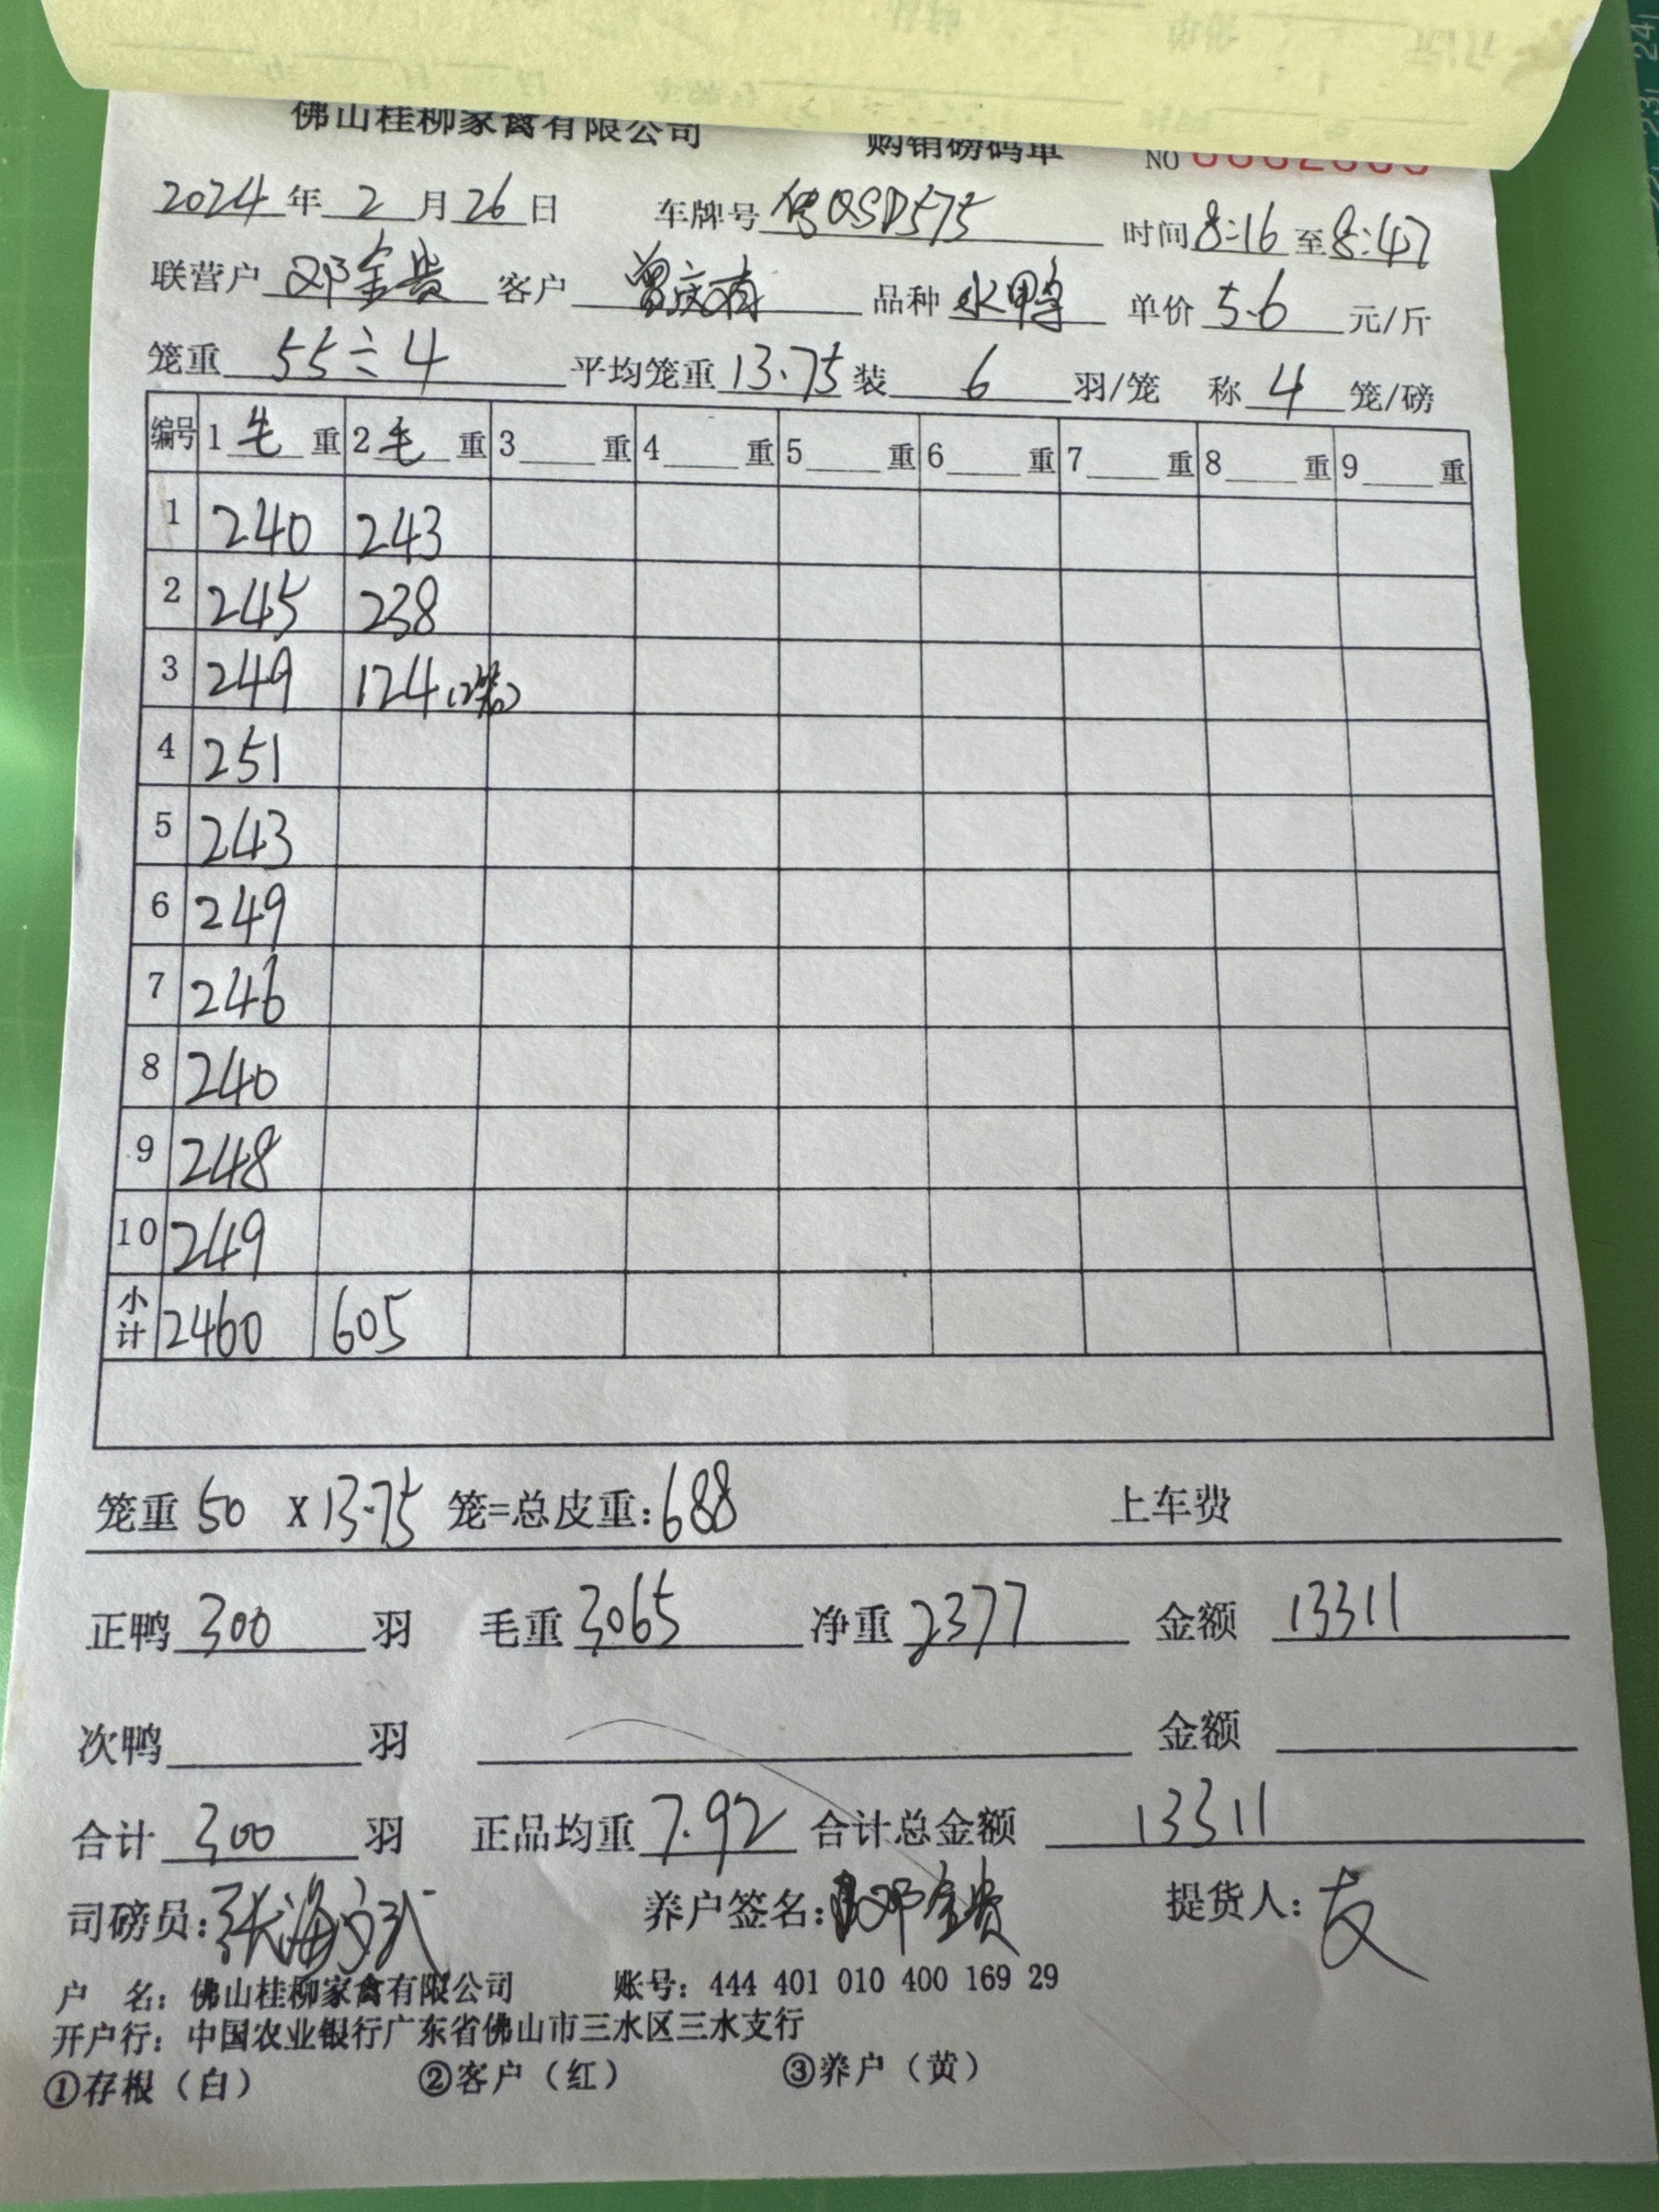 佛山桂柳家禽有限公司 购销磅码单 NO
2024年2月26日 车牌号 粤QSD575 时间8:16至8:47
联营户 邓金贵 客户 曾庆有 品种 水鸭 单价5.6元/斤
笼重 55÷4 平均笼重13.75装6羽/笼 称4笼/磅
编号 1毛重 2毛重 3重 4重 5重 6重 7重 8重 9重
1 240 243
2 245 238
3 249 124(2笼)
4 251
5 243
6 249
7 246
8 240
9 248
10 249
小计 2460 605
笼重 50 X 13.75 笼=总皮重:688 上车费
正鸭 300 羽 毛重 3065 净重 2377 金额 13311
次鸭 羽 金额
合计 300 羽 正品均重 7.92 合计总金额 13311
司磅员: 养户签名:邓金贵 提货人:友
户 名: 佛山桂柳家禽有限公司 账号: 444 401 010 400 169 29
开户行: 中国农业银行广东省佛山市三水区三水支行
①存根(白) ②客户(红) ③养户(黄)